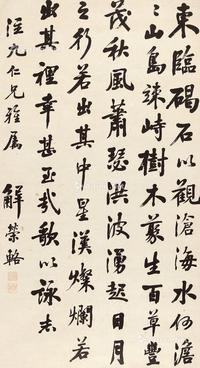 東臨碣石以觀滄海水何澹
〻山島竦峙樹木叢生百草豐
茂秋風蕭瑟洪波湧起日月
之行若出其中星漢燦爛若
出其裡幸甚至哉歌以詠志
仁兄雅屬
解榮輅